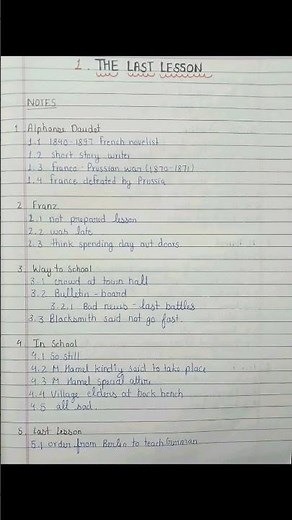 1. THE LAST LESSON
NOTES
1 Alphonse Daudet
1.1 1840-1897 French novelist
1.2 short story writer
1.3 Franco-Prussian war (1870-1871)
1.4 France defeated by Prussia
2 Franz
2.1 not prepared lesson
2.2 was late
2.3 think spending day out doors
3 Way to School
3.1 crowd at town hall
3.2 Bulletin-board
3.2.1 Bad news - last battles
3.3 Blacksmith said not go fast
4 In School
4.1 So still
4.2 M Hamel kindly said to take place
4.3 M Hamel special attire
4.4 Village elders at back bench
4.5 all sad.
5 Last Lesson
5.1 order from Berlin to teach German